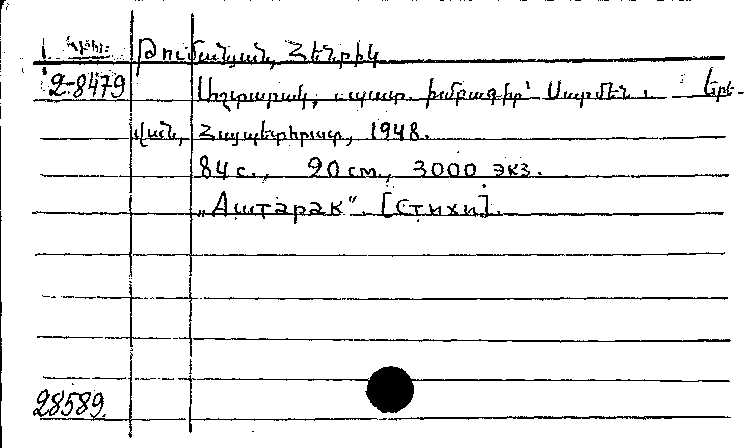 Թումանյան, Հենրիկ
2-8479 Աշտարակ, պատ. խմբագիր՝ Սարմեն. Երե-
վան, Հայպետհրատ, 1948.
84 с., 20 см., 3000 экз.
„Аштарак“. [Стихи].
28589.